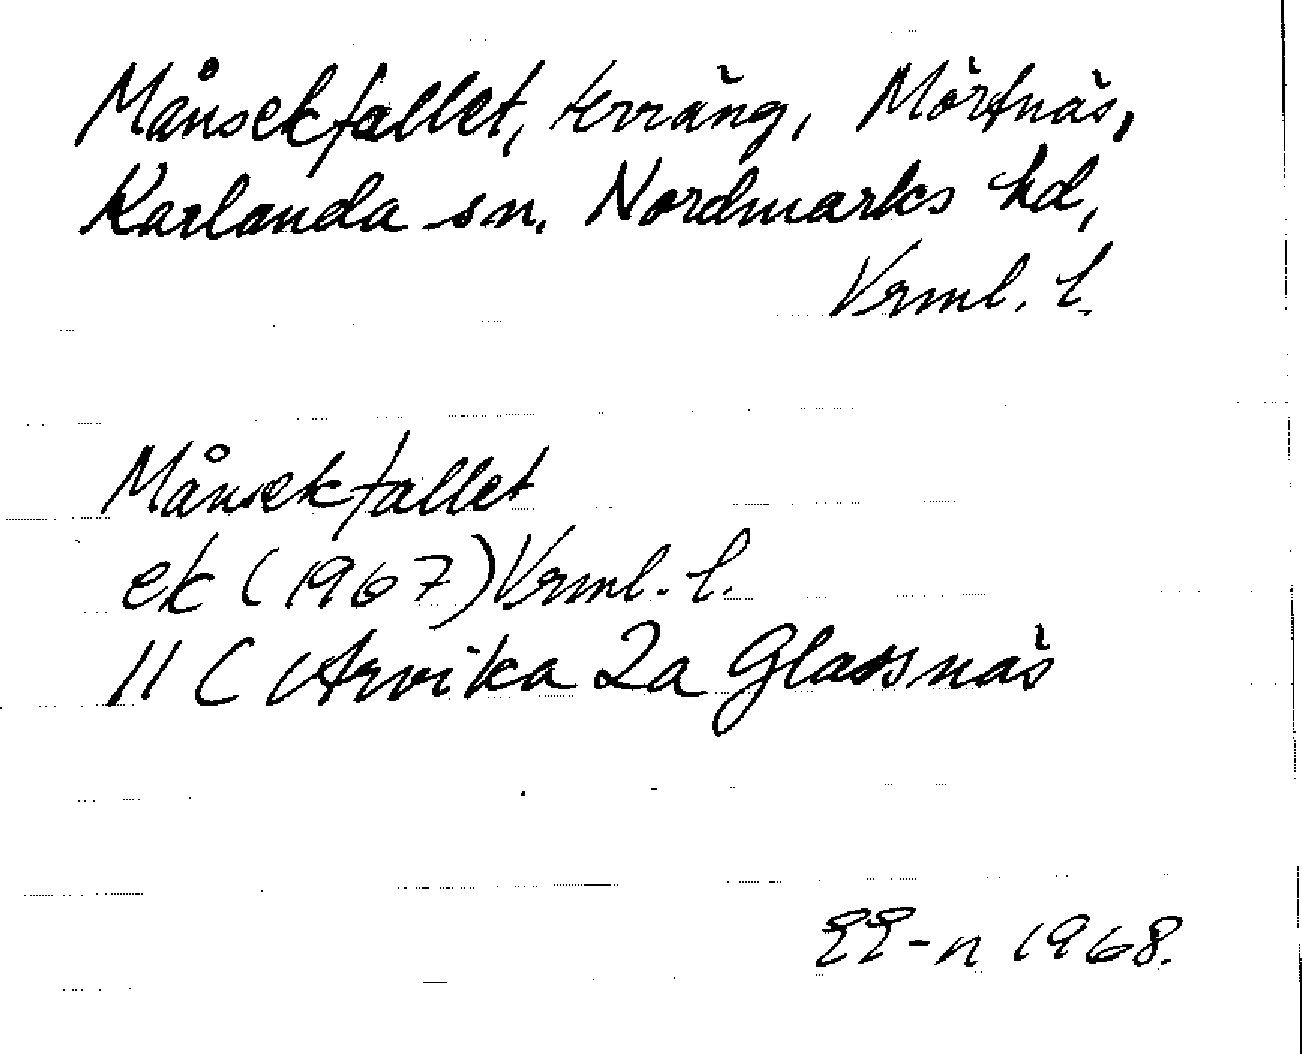 Månsekfallet, terräng, Mörtnäs,
Karlanda sn. Nordmarks hd,
Vrml. l.
Månsekfallet
ek (1967) Vrml. l.
11 C Arvika 2a Glassnäs
EE-n 1968.